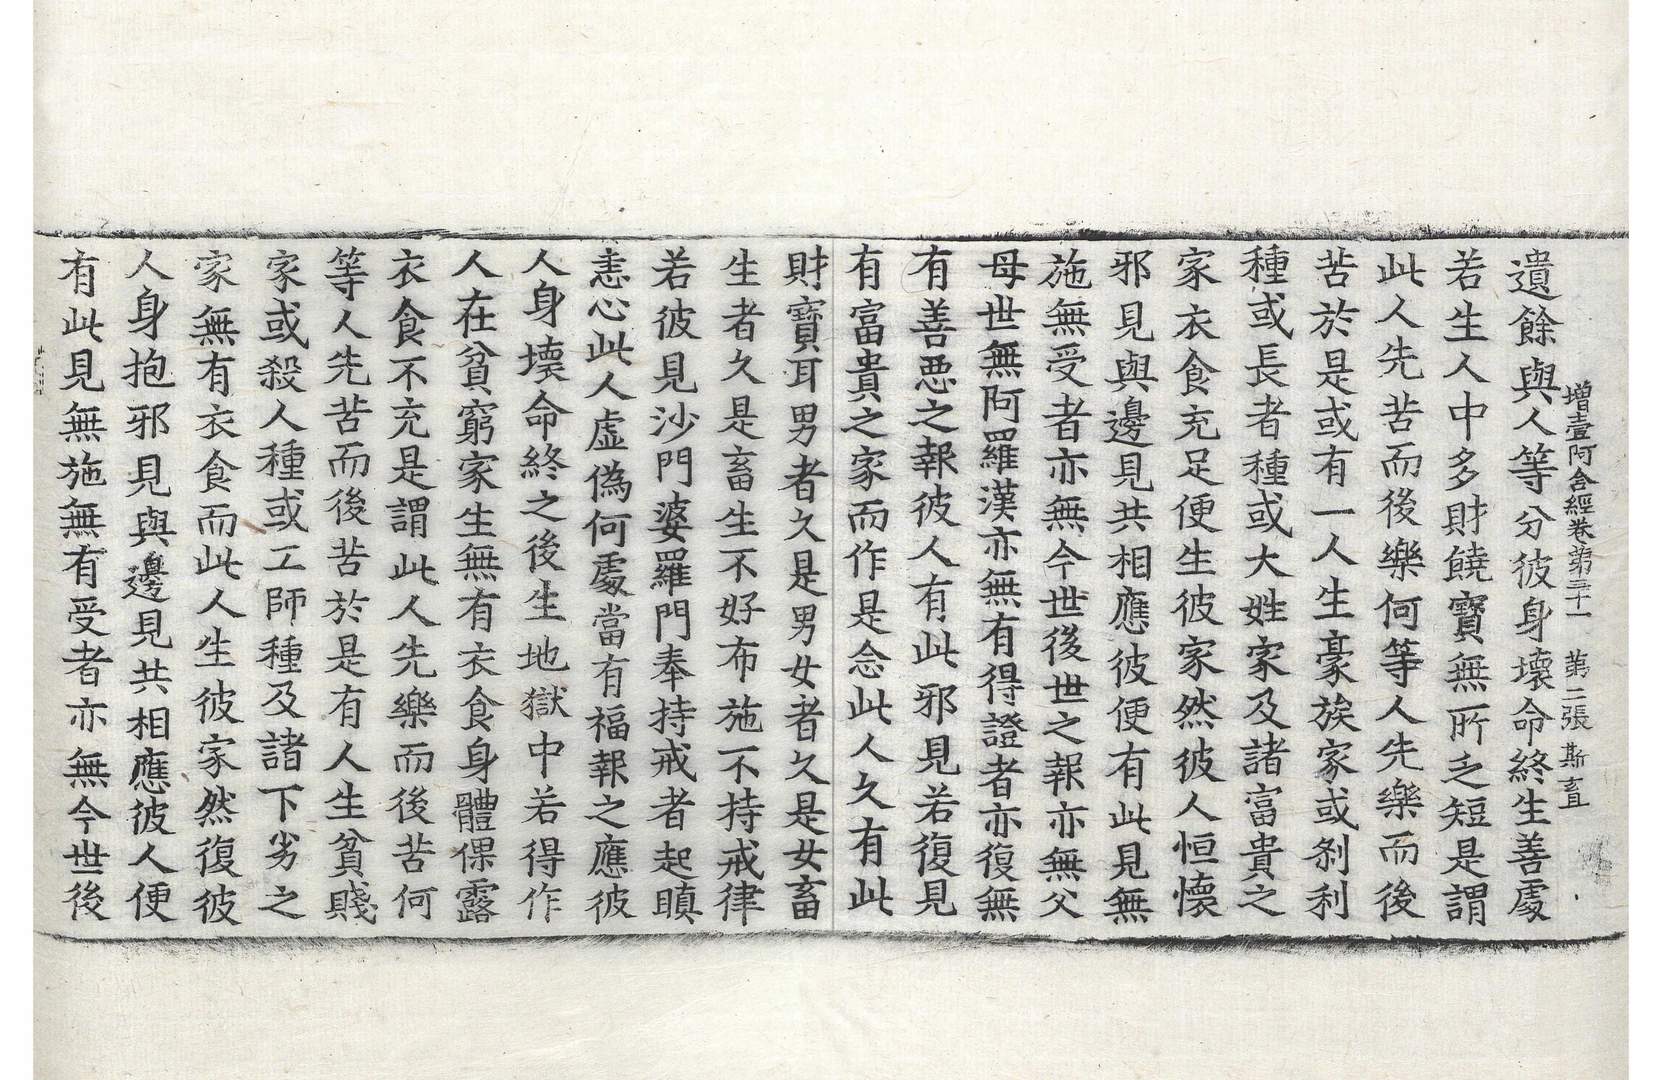 增壹阿含經卷第二十一　第二張　斯
遺餘與人等分彼身壞命終生善處
若生人中多財饒寶無所乏短是謂
此人先苦而後樂何等人先樂而後
苦於是或有一人生豪族家或刹利
種或長者種或大姓家及諸富貴之
家衣食充足便生彼家然彼人恒懷
邪見與邊見共相應彼便有此見無
施無受者亦無今世後世之報亦無父
母世無阿羅漢亦無有得證者亦復無
有善惡之報彼人有此邪見若復見
有富貴之家而作是念此人久有此
財寶耳男者久是男女者久是女畜
生者久是畜生不好布施不持戒律
若彼見沙門婆羅門奉持戒者起瞋
恚心此人虛偽何處當有福報之應彼
人身壞命終之後生地獄中若得作
人在貧窮家生無有衣食身體倮露
衣食不充是謂此人先樂而後苦何
等人先苦而後苦於是有人生貧賤
家或殺人種或工師種及諸下劣之
家無有衣食而此人生彼家然復彼
人身抱邪見與邊見共相應彼人便
有此見無施無有受者亦無今世後